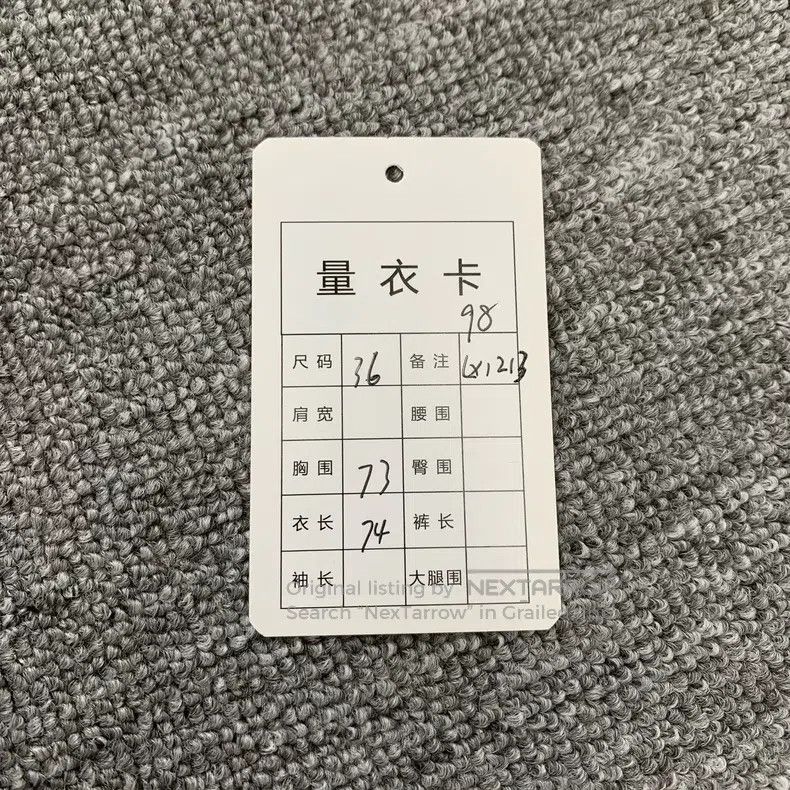 量衣卡
98
尺码 36 备注 Lx1213
肩宽 腰围
胸围 73 臀围
衣长 74 裤长
袖长 大腿围
Original listing by NEXTARROW
Search "NexTarrow" in Grailed